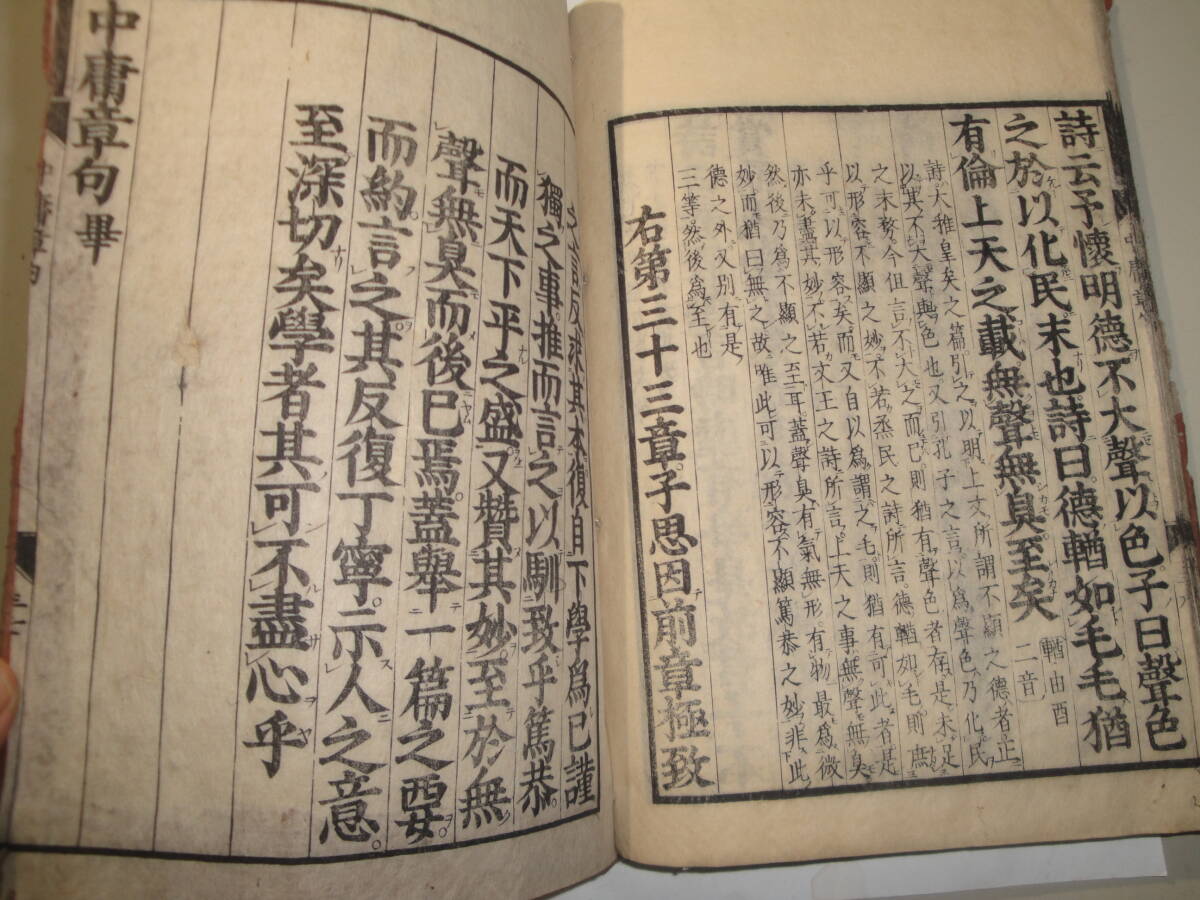 詩云予懷明德不大聲以色子曰聲色
之於以化民末也詩曰德輶如毛毛猶
有倫上天之載無聲無臭至矣
輶由酉
二音
詩大雅皇矣之篇引之以明上文所謂不顯之德者正
以其不大聲與色也又引孔子之言以爲聲色乃化民
之末務今但言不大之而已則猶有聲色者存是未足
以形容不顯之妙不若烝民之詩所言德輶如毛則庶
乎可以形容矣而又自以爲謂之毛則猶有可比者是
亦未盡其妙不若文王之詩所言上天之事無聲無臭
然後乃爲不顯之至耳蓋聲臭有氣無形在物最爲微
妙而猶曰無之故唯此可以形容不顯篤恭之妙非此
德之外又別有是
三等然後爲至也
右第三十三章子思因前章極致
之言反求其本復自下學爲己謹
獨之事推而言之以馴致乎篤恭
而天下平之盛又贊其妙至於無
聲無臭而後已焉蓋舉一篇之要
而約言之其反復丁寧示人之意
至深切矣學者其可不盡心乎
中庸章句畢